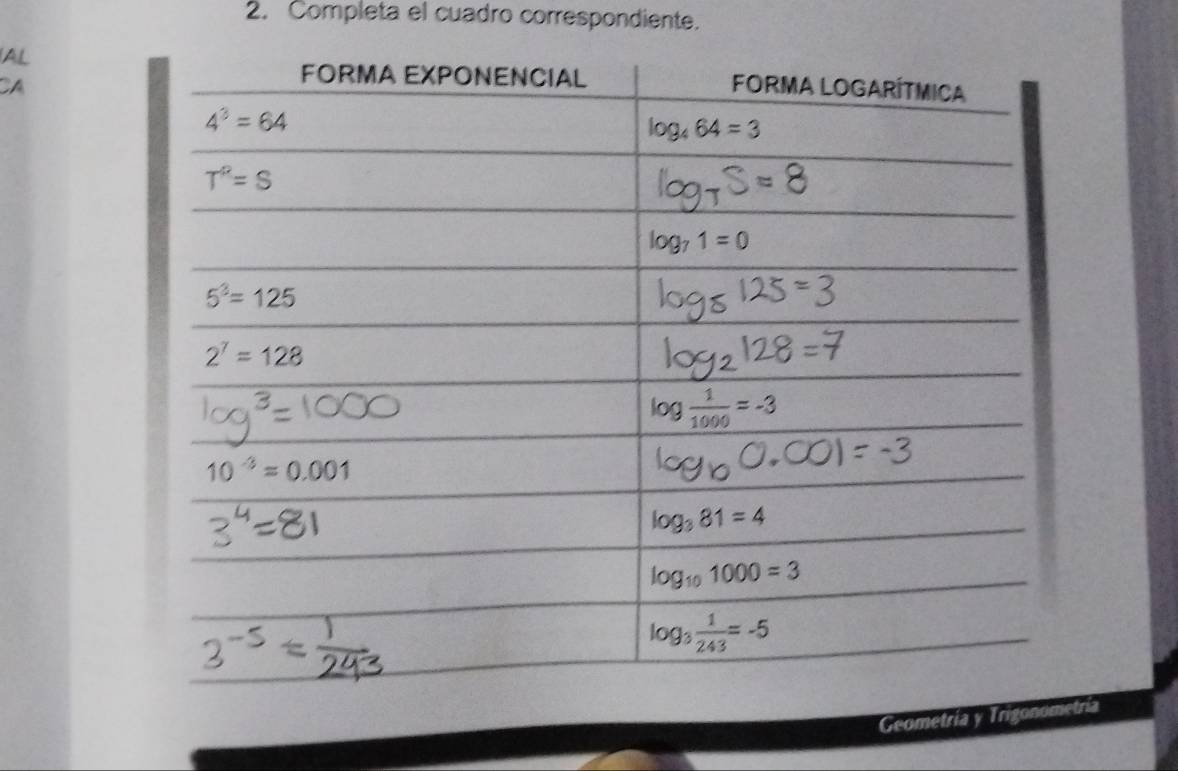 2. Completa el cuadro correspondiente.
AL
CA
FORMA EXPONENCIAL FORMA LOGARÍTMICA
4³ = 64 log₄ 64 = 3
Tᴿ = S log_T S = 8
log₇ 1 = 0
5³ = 125 log₅ 125 = 3
2⁷ = 128 log₂ 128 = 7
log³ = 1000 log 1/1000 = -3
10⁻³ = 0.001 log₁₀ 0.001 = -3
3⁴ = 81 log₃ 81 = 4
log₁₀ 1000 = 3
3⁻⁵ = 1/243 log₃ 1/243 = -5
Geometría y Trigonometría